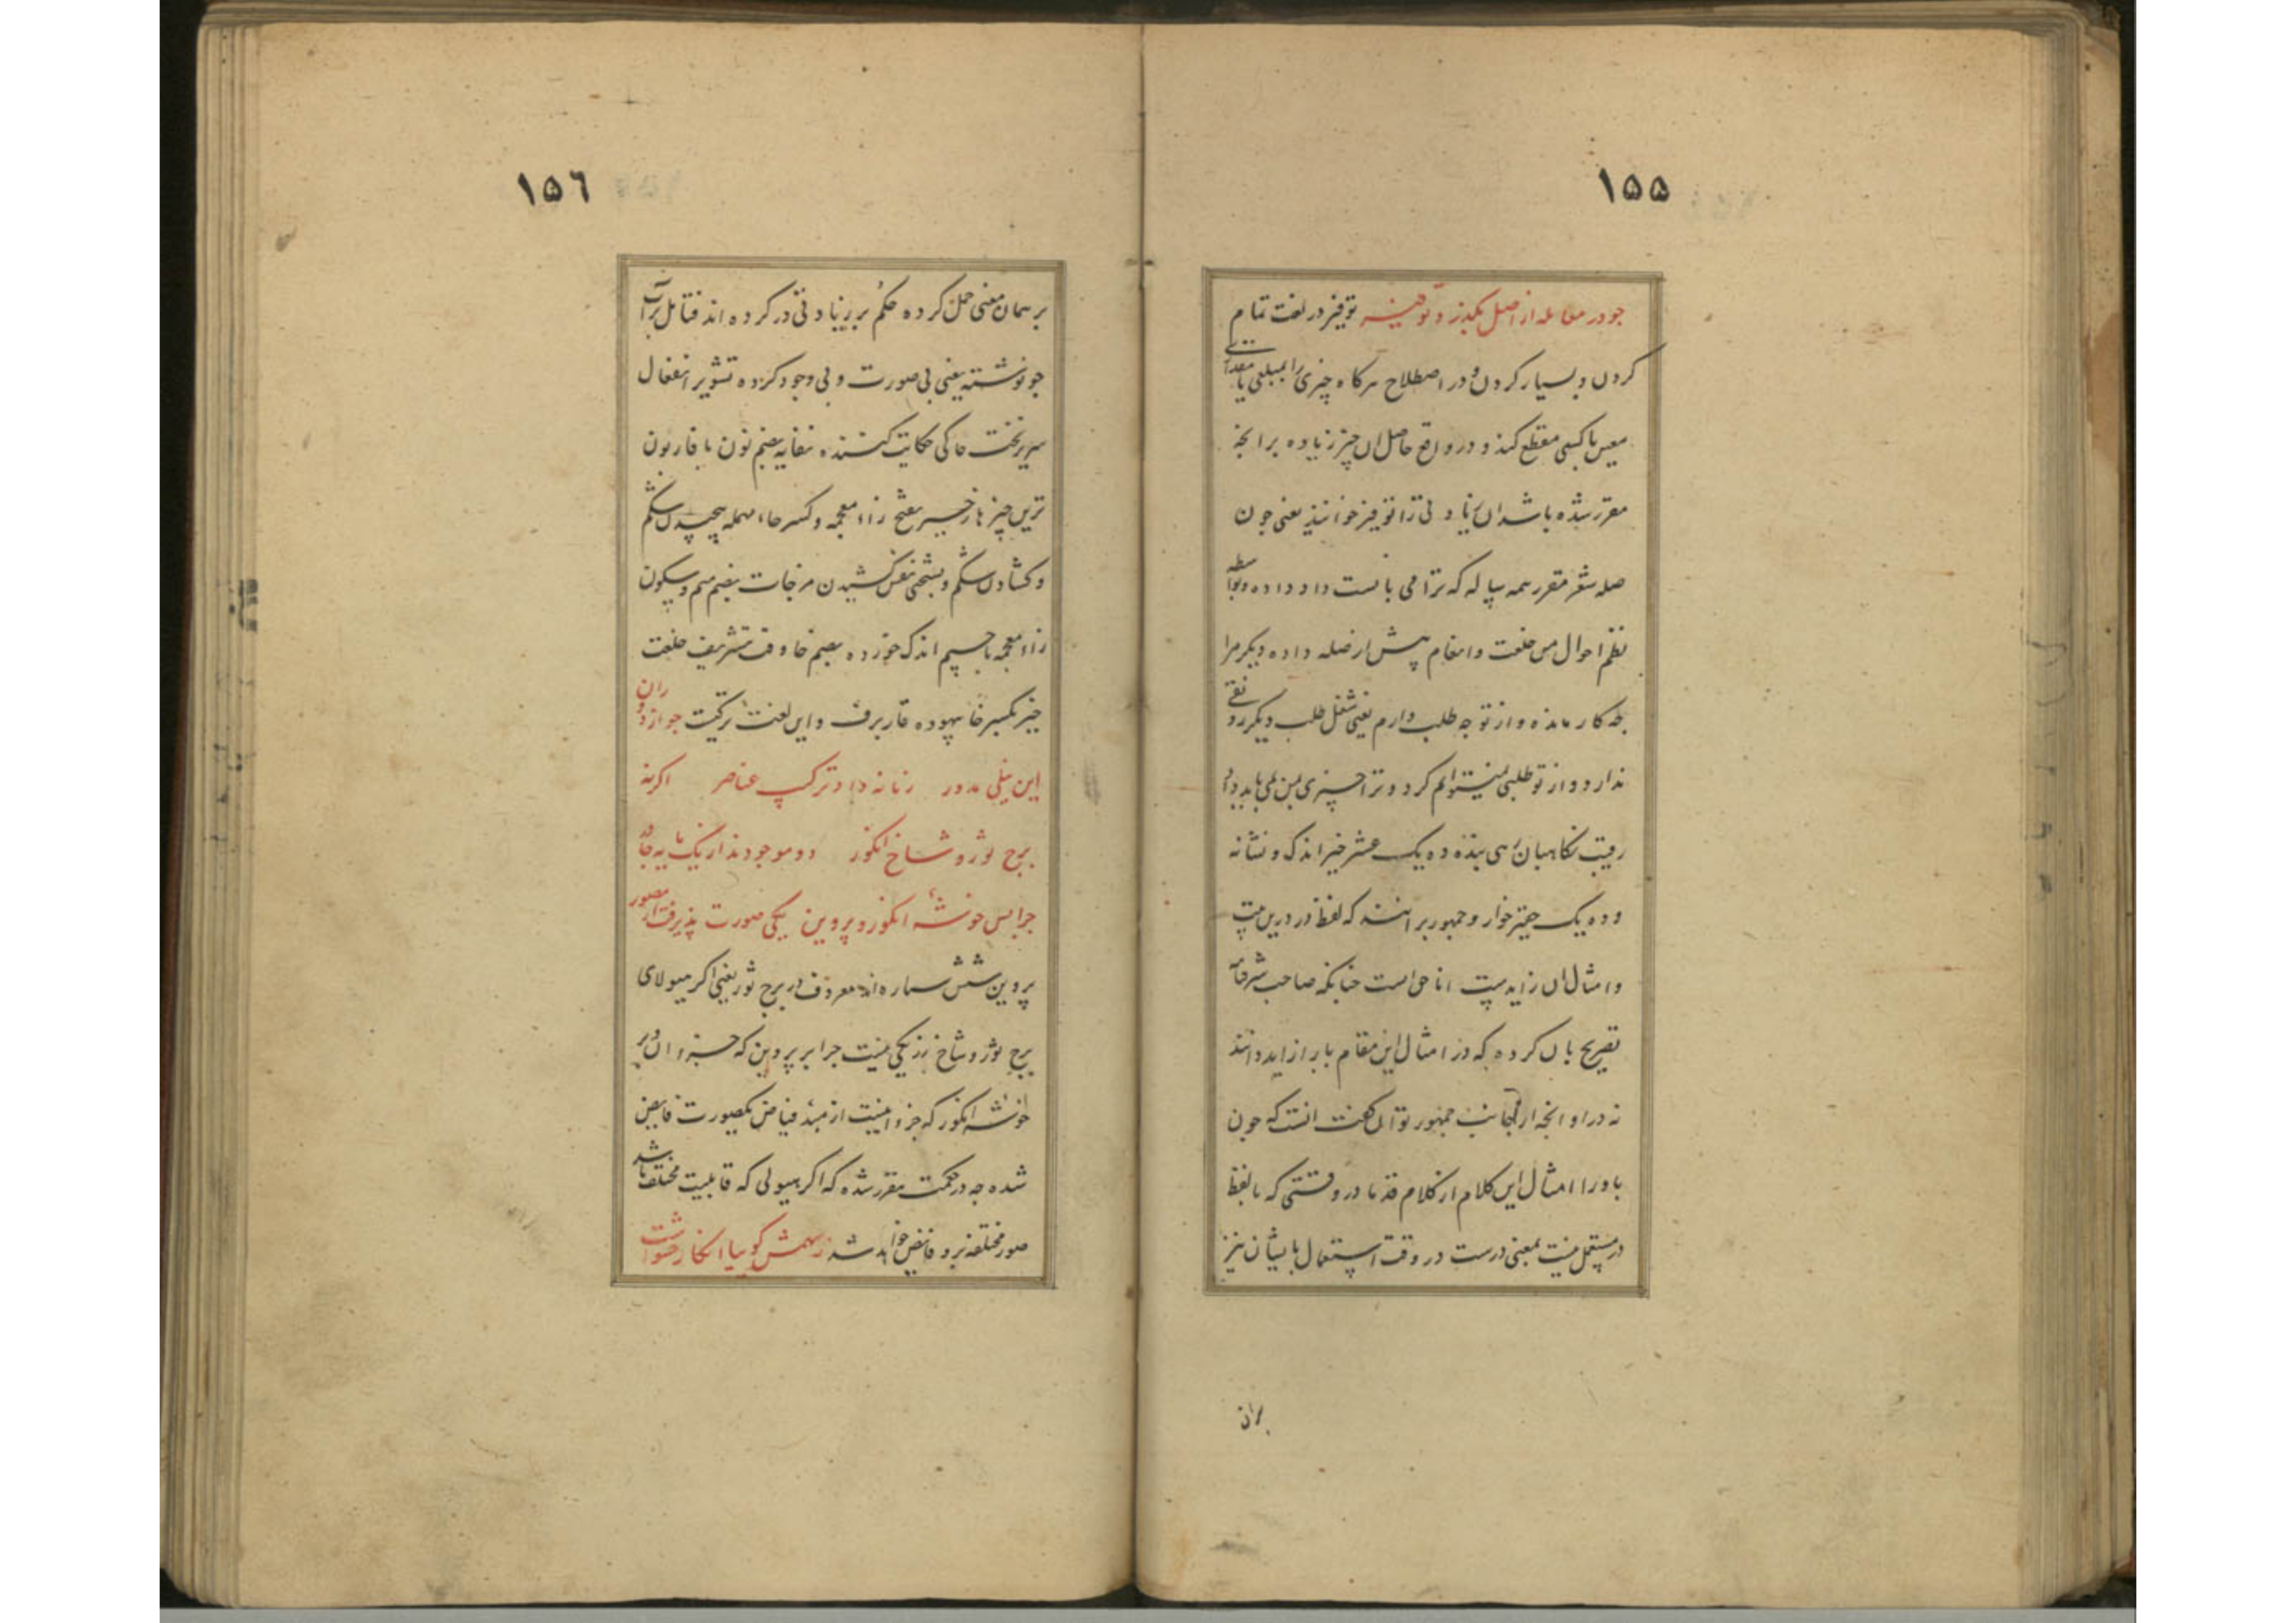 ۱۵۵
جو در معامله از اصل بگذرد توفیر توفیر در لغت تمام
کردن و بسیار کردن و در اصطلاح هرکاه چیزی را بمبلغی یا مقداری
معین با کسی مقطع کند و در واقع حاصل ان چیز زیاده بر انچه
مقرر شده باشد ان زیادتی را توفیر خوانند یعنی جون
صله شعر مقرر همه ساله که ترا می بایست داد داده و بواسطه
نظم احوال من خلعت و انعام پیش از صله داده دیکر مرا
چه کار مانده و از تو چه طلب دارم یعنی شغل طلب دیکر رونقی
ندارد و از تو طلبی نمیتوانم کرد و ترا چیزی بمن نمی باید داد
رقیب نکاهبان رهی بنده ده یک عشر خیر اندک و نشانه
و ده یک حقیر خوار و جمهور برانند که لفظ در درین بیت
و امثال ان زاید است اما حق است چنانکه صاحب شرفنامه
تصریح بان کرده که در امثال این مقام با را زاید دانند
نه در را و انچه از جانب جمهور توان کفت انست که جون
با و را امثال این کلام از کلام قدما در وقتی که با لفظ
در مستعمل نیست بمعنی درست در وقت استعمال با ایشان نیز
بران
۱۵٦
بر همان معنی حمل کرده حکم بر زیادتی در کرده اند فتامل براب
جو نوشته یعنی بی صورت و بی وجود کرده تشویر انفعال
سریر تخت حاکی حکایت کننده نفایه بضم نون با فا زبون
ترین چیزها زحیر بفتح زاء معجمه و کسر حاء مهمله پیچیدن شکم
و کشادن شکم و بسختی نفس کشیدن مزجات بضم میم و سکون
زاء معجمه با جیم اندک خورده بضم خا و ف تشریف خلعت
خیر بکسر خا بیهوده قاربرف و این لغت ترکیت جو از دوران
این نیلی مدور زمانه داد ترکیب عناصر اکر نه
برج ثور و شاخ انکور دو موجودند از یک مایه جادر
جرا بس خوشه انکور و پروین بیکی صورت پذیرفت از مصور
پروین شش ستاره اند معروف در برج ثور یعنی اکر هیولای
برج ثور و شاخ رز یکی نیست جرا بر پروین که جزو ان بر
خوشه انکور که جزو اینست از مبدء فیاض یکصورت فایض
شده چه در حکمت مقرر شده که اکر هیولی که قابلیت مختلف باشد
صور مختلفه برو فایض خواهد شد ز سهمش کوییا انکار